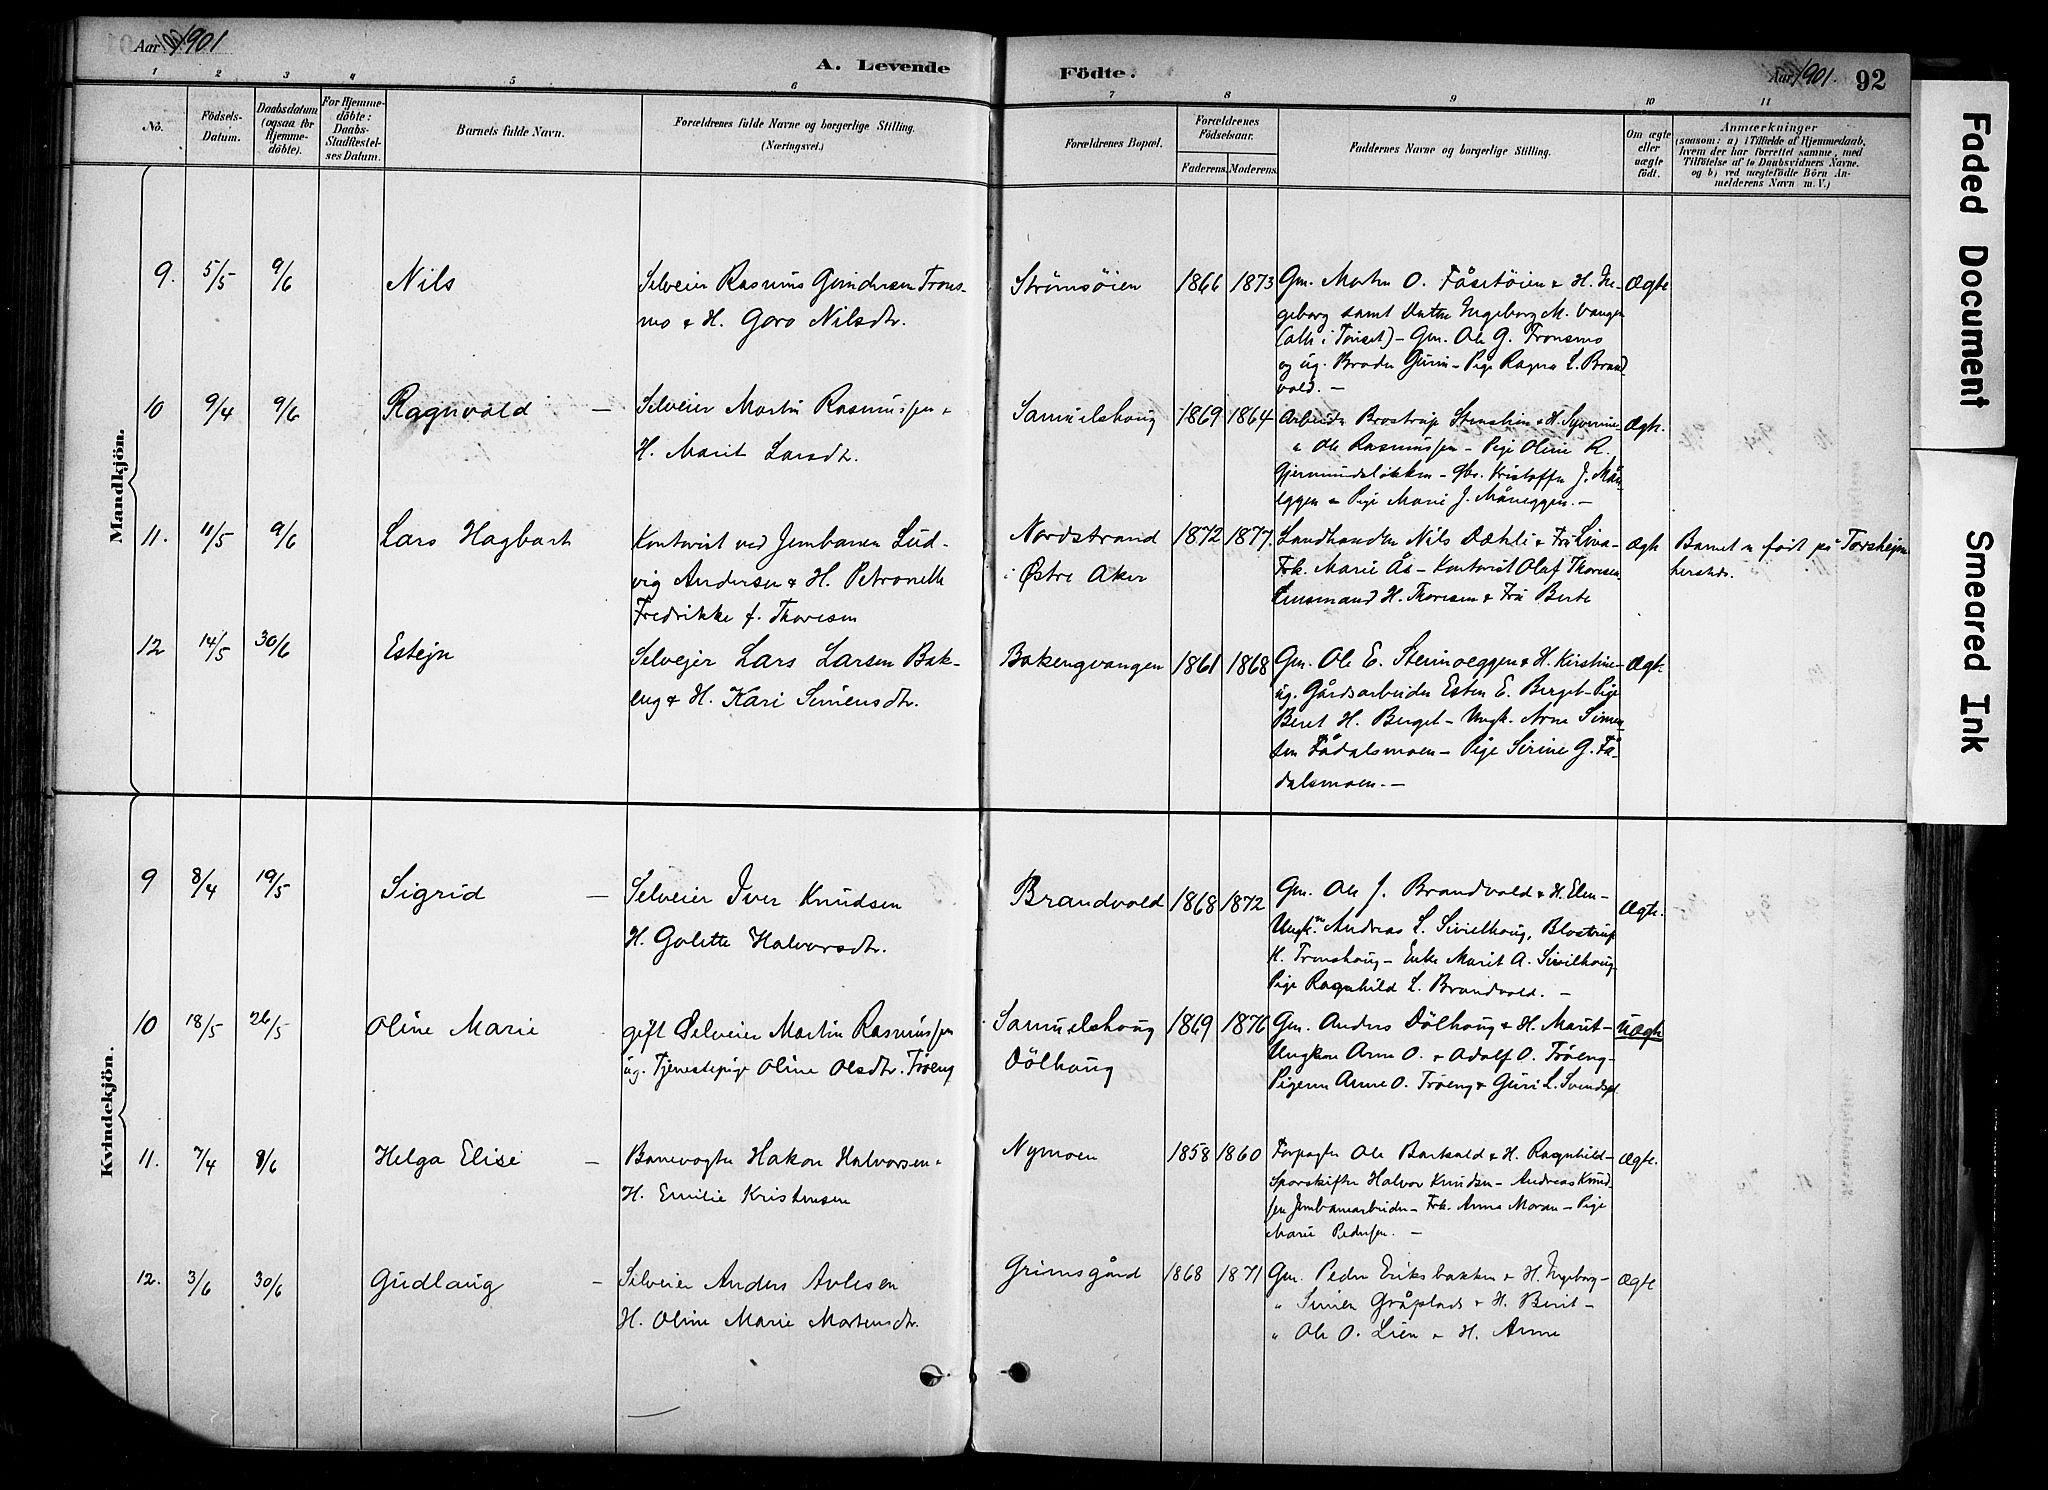 Aar 1901
A. Levende
Födte.
Aar 1901. 92
1 2 3 4 5 6 7 8 9 10 11
No.
Födsels-
Datum.
Daabsdatum
(ogsaa for
Hjemme-
döbte).
For Hjemme-
döbte:
Daabs-
Stadfæstel-
ses Datum.
Barnets fulde Navn.
Forældrenes fulde Navne og borgerlige Stilling.
(Næringsvei.)
Forældrenes Bopæl.
Forældrenes
Födselsaar.
Faderens. Moderens.
Faddernes Navne og borgerlige Stilling.
Om ægte
eller
uægte
födt.
Anmærkninger
(saasom: a) i Tilfælde af Hjemmedaab,
hvem der har forrettet samme, med
Tilföielse af to Daabsvidners Navne.
og b) ved uægtefödte Börn An-
melderens Navn m. V.)
Mandkjön.
9. 5/5 9/6 Nils
Selveier Rasmus Gundersen Trons-
mo & H. Goro Nilsdtr.
Strømsöien 1866 1873
Gm. Morten O. Fåsetöien & H. In-
geborg samt Datter Ingeborg M. Vangen
(alle i Tönset) – Gm. Ole G. Tronsmo
og ug. Broder Gunn – Pige Ragna L. Brand-
vold. –
Ægte
10 9/4 9/6 Ragnvald –
Selveier Martin Rasmussen &
H. Marit Larsdtr.
Samuelshaug 1869 1864
Arbeider Brostrup Stenslien & H. Syverine
" Ole Rasmussen – Pige Oline R.
Gjermundsløkken – Gbr. Kristoffer J. Mån-
eggen & Pige Marie J. Måneggen. –
Ægte.
11. 11/5 9/6 Lars Hagbart
Kontorist ved Jernbanen Lud-
vig Andersen & H. Petronelle
Fredrikke f. Thoresen
Nordstrand
i Østre Aker
1872 1877.
Landhandler Nils Dæhli & Fru Lina –
Frk. Marie Ås – Kontorist Olaf Thoresen
Lensmand H. Thoresen & Fru Berte
Ægte
Barnet er født på Torshejm
hersteds.
12 14/5 30/6 Estejn
Selvejer Lars Larsen Bak-
eng & H. Kari Simensdtr.
Bakengvangen 1861 1868
Gm. Ole E. Steimoeggen & H. Kirstine –
ug. Gårdsarbeider Esten E. Berget – Pige
Beret H. Berget – Ungk. Arne Simen-
sen Fådalsmoen – Pige Sirine G. Få-
dalsmoen. –
Ægte.
Kvindekjön.
9 8/4 19/5 Sigrid –
Selveier Iver Knudsen
H. Golette Halvorsdtr.
Brandvold 1868 1872
Gm. Ole J. Brandvold & H. Elen –
Ungk. Andreas L. Sivilhaug, Blostrup
K. Tronshaug – Enke Marit A. Sivilhaug
Pige Ragnhild L. Brandvold. –
Ægte.
10 18/5 26/5 Oline Marie
gift Selveier Martin Rasmussen
ug. Tjenestepige Oline Olsdtr. Trøeng
Samuelshaug
Dölhaug
1869 1876
Gm. Anders Dölhaug & H. Marit –
Ungkarl Arne O. & Adolf O. Trøeng –
Pigerne Anne O. Trøeng & Guri L. Svendspl.
Uægte
11. 7/4 9/6 Helga Elise –
Banevogter Hakon Halvorsen &
H. Emilie Kristensen
Nymoen 1858 1860
Forpagter Ole Barkald & H. Ragnhild –
Sporskifter Halvor Knudsen – Andreas Knud-
sen Jernbanearbeider – Frk. Anna Moran – Pige
Marie Pedersen. –
Ægte.
12. 3/6 30/6 Gudlaug –
Selveier Anders Avlesen
H. Oline Marie Mortensdtr.
Grimsgård 1868 1871
Gm. Peder Eriksbakken & H. Ingeborg –
" Simen Gråplads & H. Berit –
" Ole O. Lien & H. Anne
Ægte
Faded Document
Smeared Ink